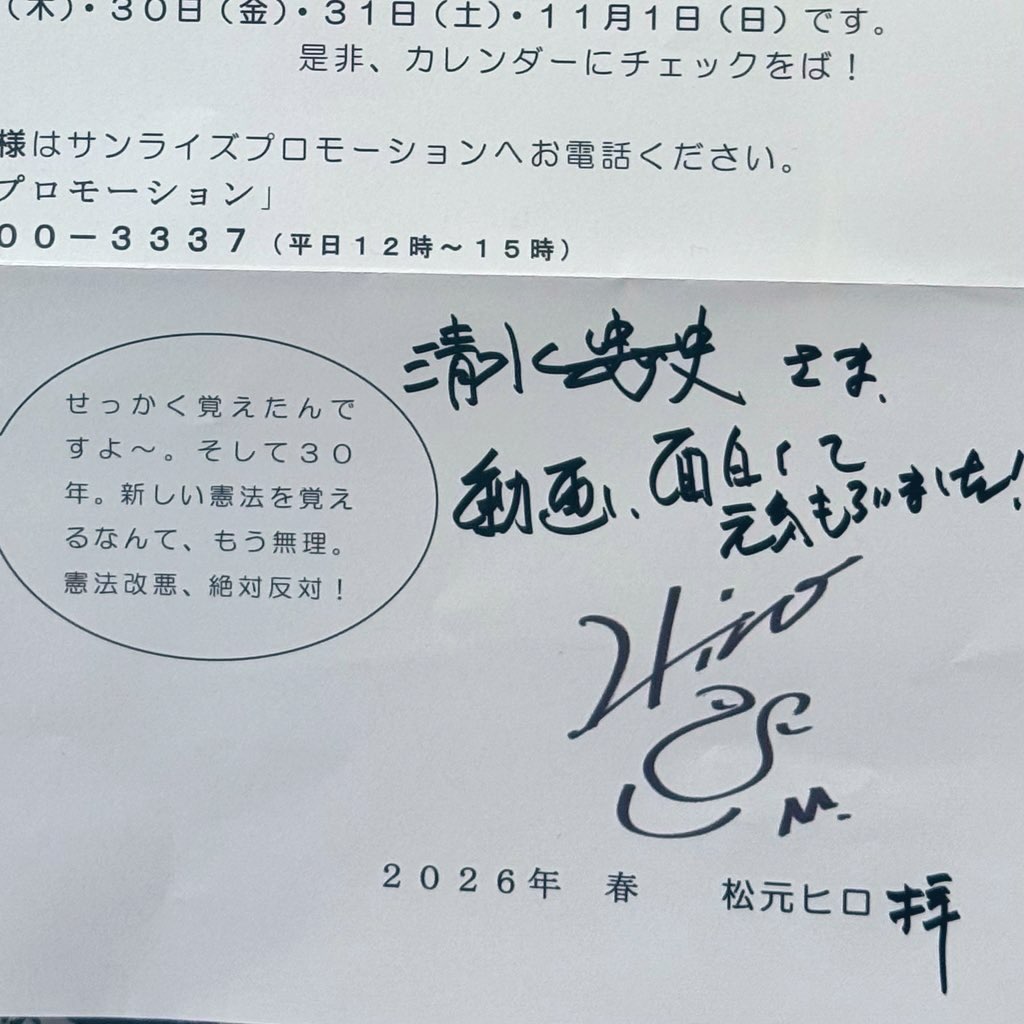 （木）・３０日（金）・３１日（土）・１１月１日（日）です。
是非、カレンダーにチェックをば！
様はサンライズプロモーションへお電話ください。
プロモーション」
００－３３３７（平日１２時～１５時）
せっかく覚えたんで
すよ～。そして３０
年。新しい憲法を覚え
るなんて、もう無理。
憲法改悪、絶対反対！
清水 さま、
動画、面白くて
元気もらいました！
Hiro
M.
２０２６年 春 松元ヒロ拝